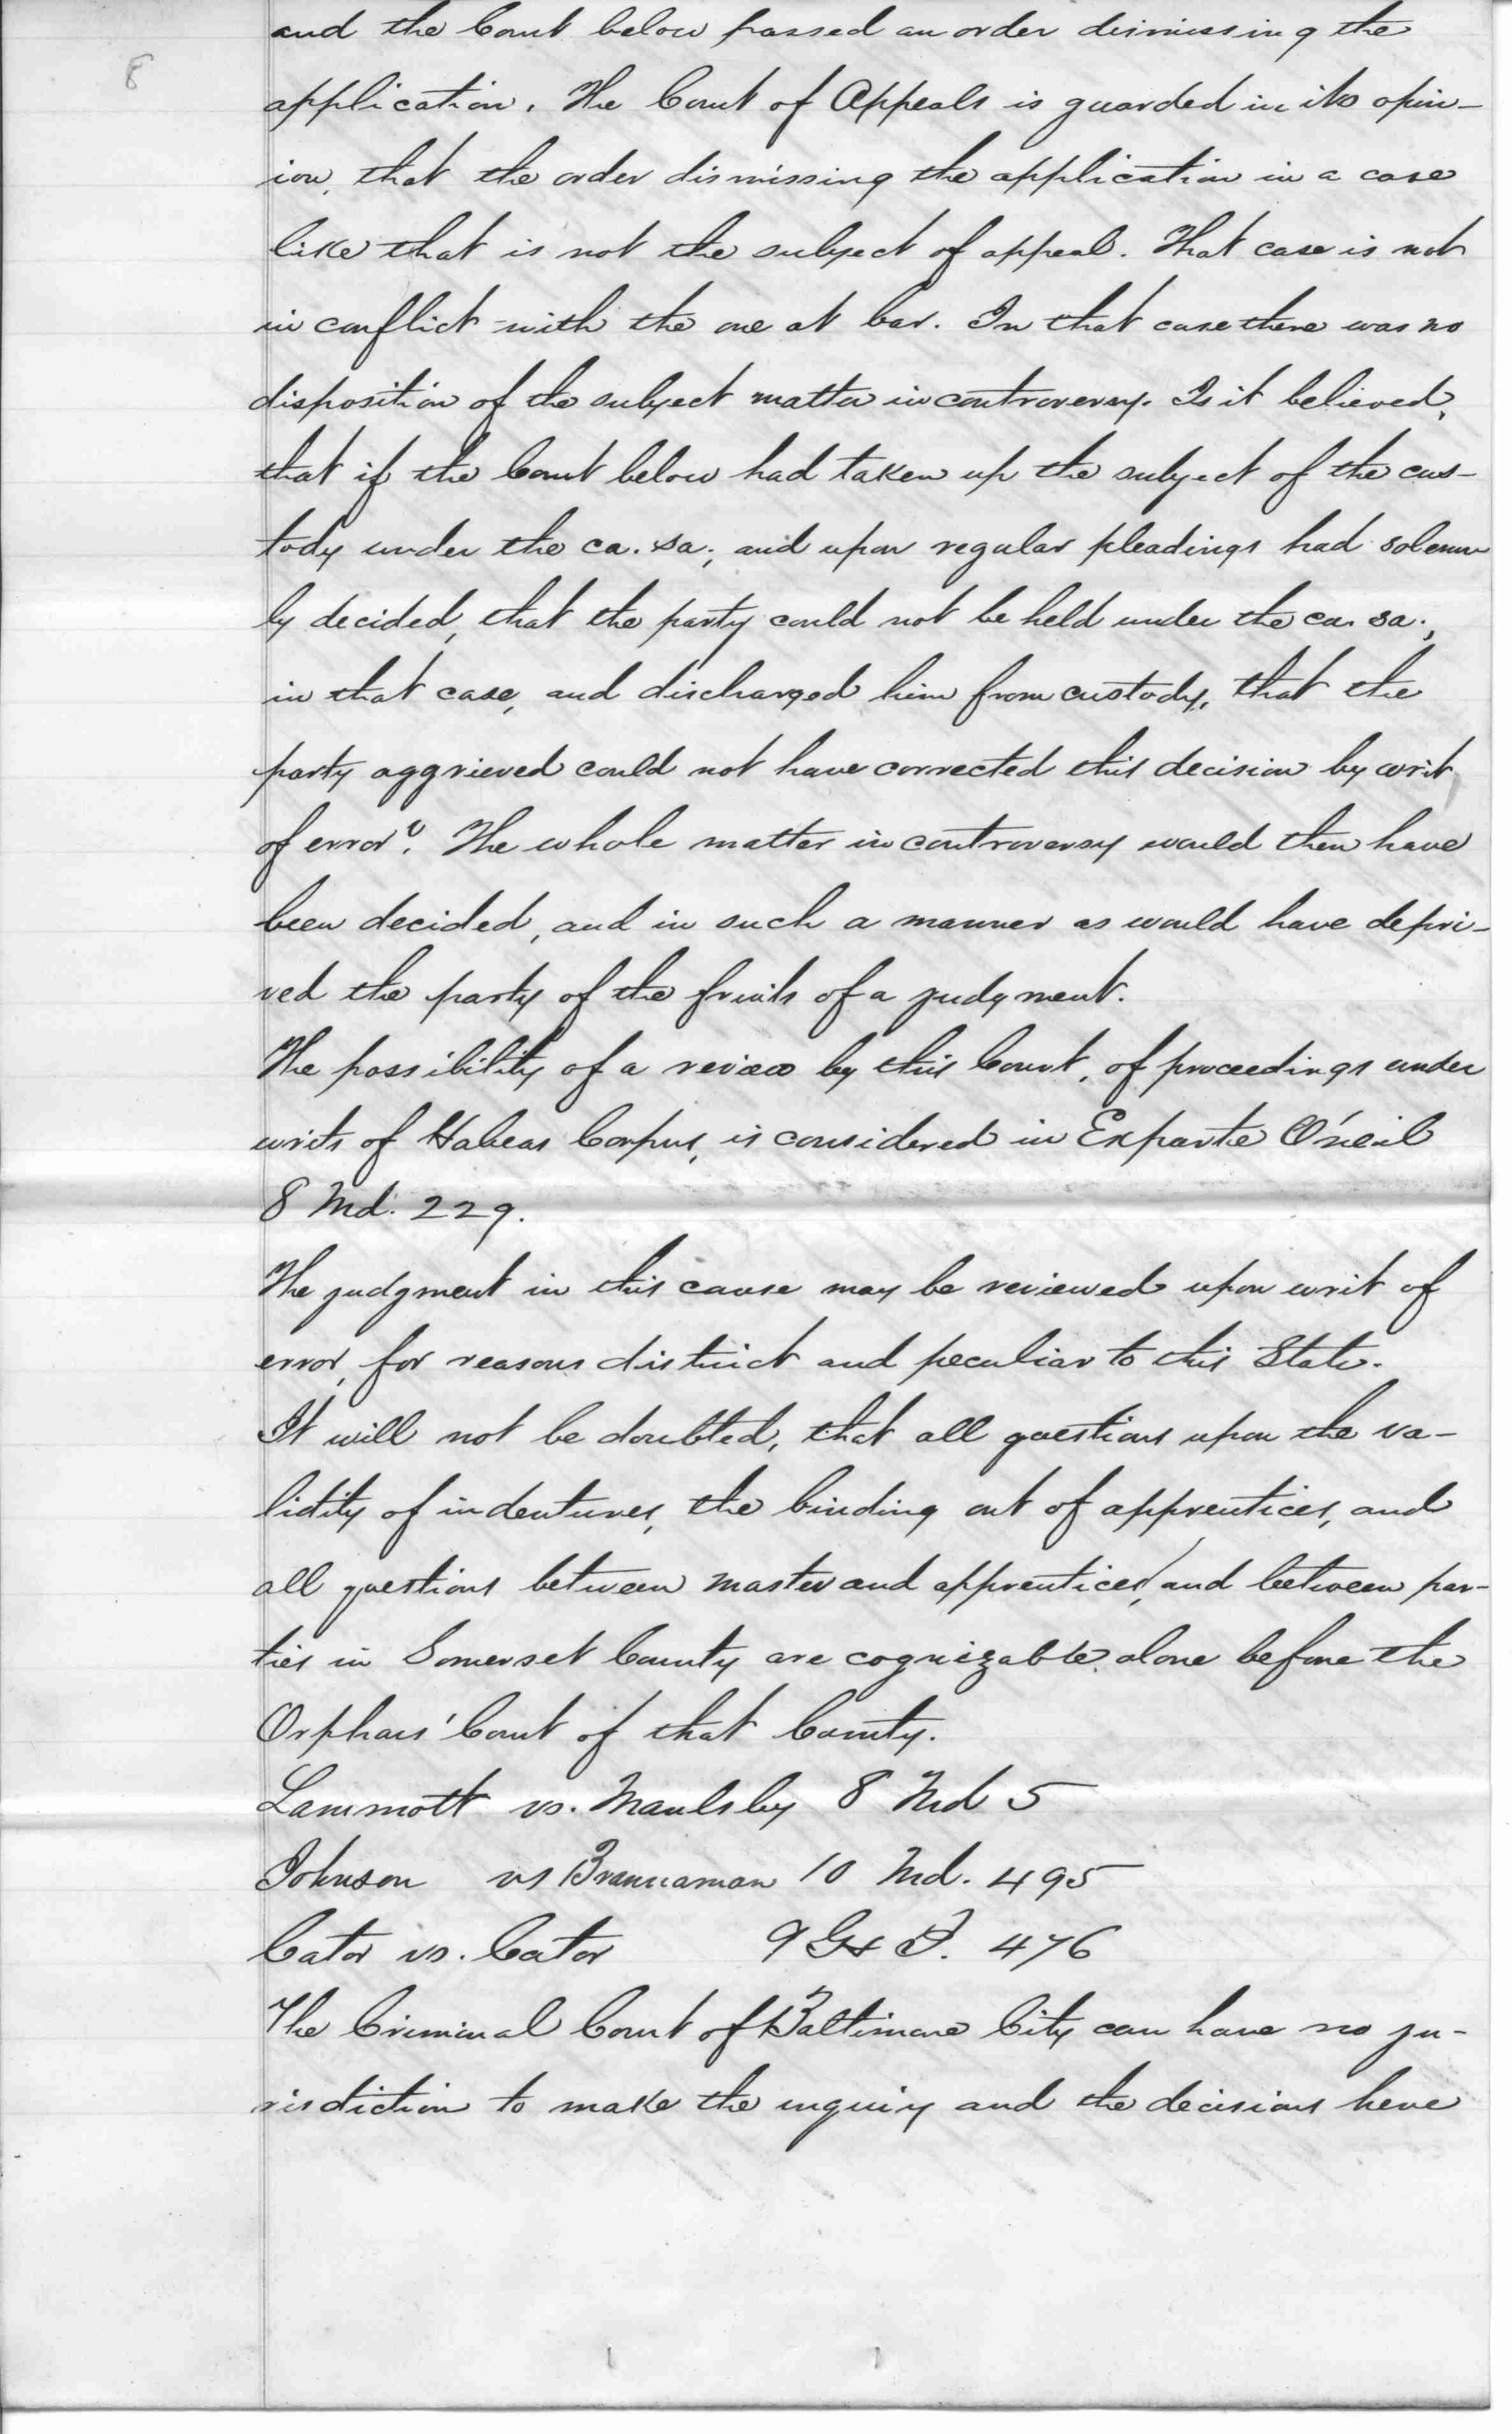 8
and the Court below passed an order dismissing the
application. The Court of Appeals is guarded in its opin-
ion, that the order dismissing the application in a case
like that is not the subject of appeal. That case is not
in conflict with the one at bar. In that case there was no
disposition of the subject matter in controversy. Is it believed,
that if the Court below had taken up the subject of the cus-
tody under the ca. sa., and upon regular pleadings had solemn
ly decided, that the party could not be held under the ca. sa.,
in that case, and discharged him from custody, that the
party aggrieved could not have corrected this decision by writ
of error? The whole matter in controversy would then have
been decided, and in such a manner as would have depri-
ved the party of the fruits of a judgment.
The possibility of a review by this Court, of proceedings under
writs of Habeas Corpus, is considered in Exparte O'neil
8 Md. 229.
The judgment in this cause may be reviewed upon writ of
error, for reasons distinct and peculiar to this State.
It will not be doubted, that all questions upon the va-
lidity of indentures, the binding out of apprentices, and
all questions between master and apprentices, and between par-
ties in Somerset County are cognizable alone before the
Orphans' Court of that County.
Lammott vs. Maulsby 8 Md 5
Johnson vs Brannaman 10 Md. 495
Cator vs. Cator 9 G & J. 476
The Criminal Court of Baltimore City can have no ju-
risdiction to make the inquiry and the decisions here